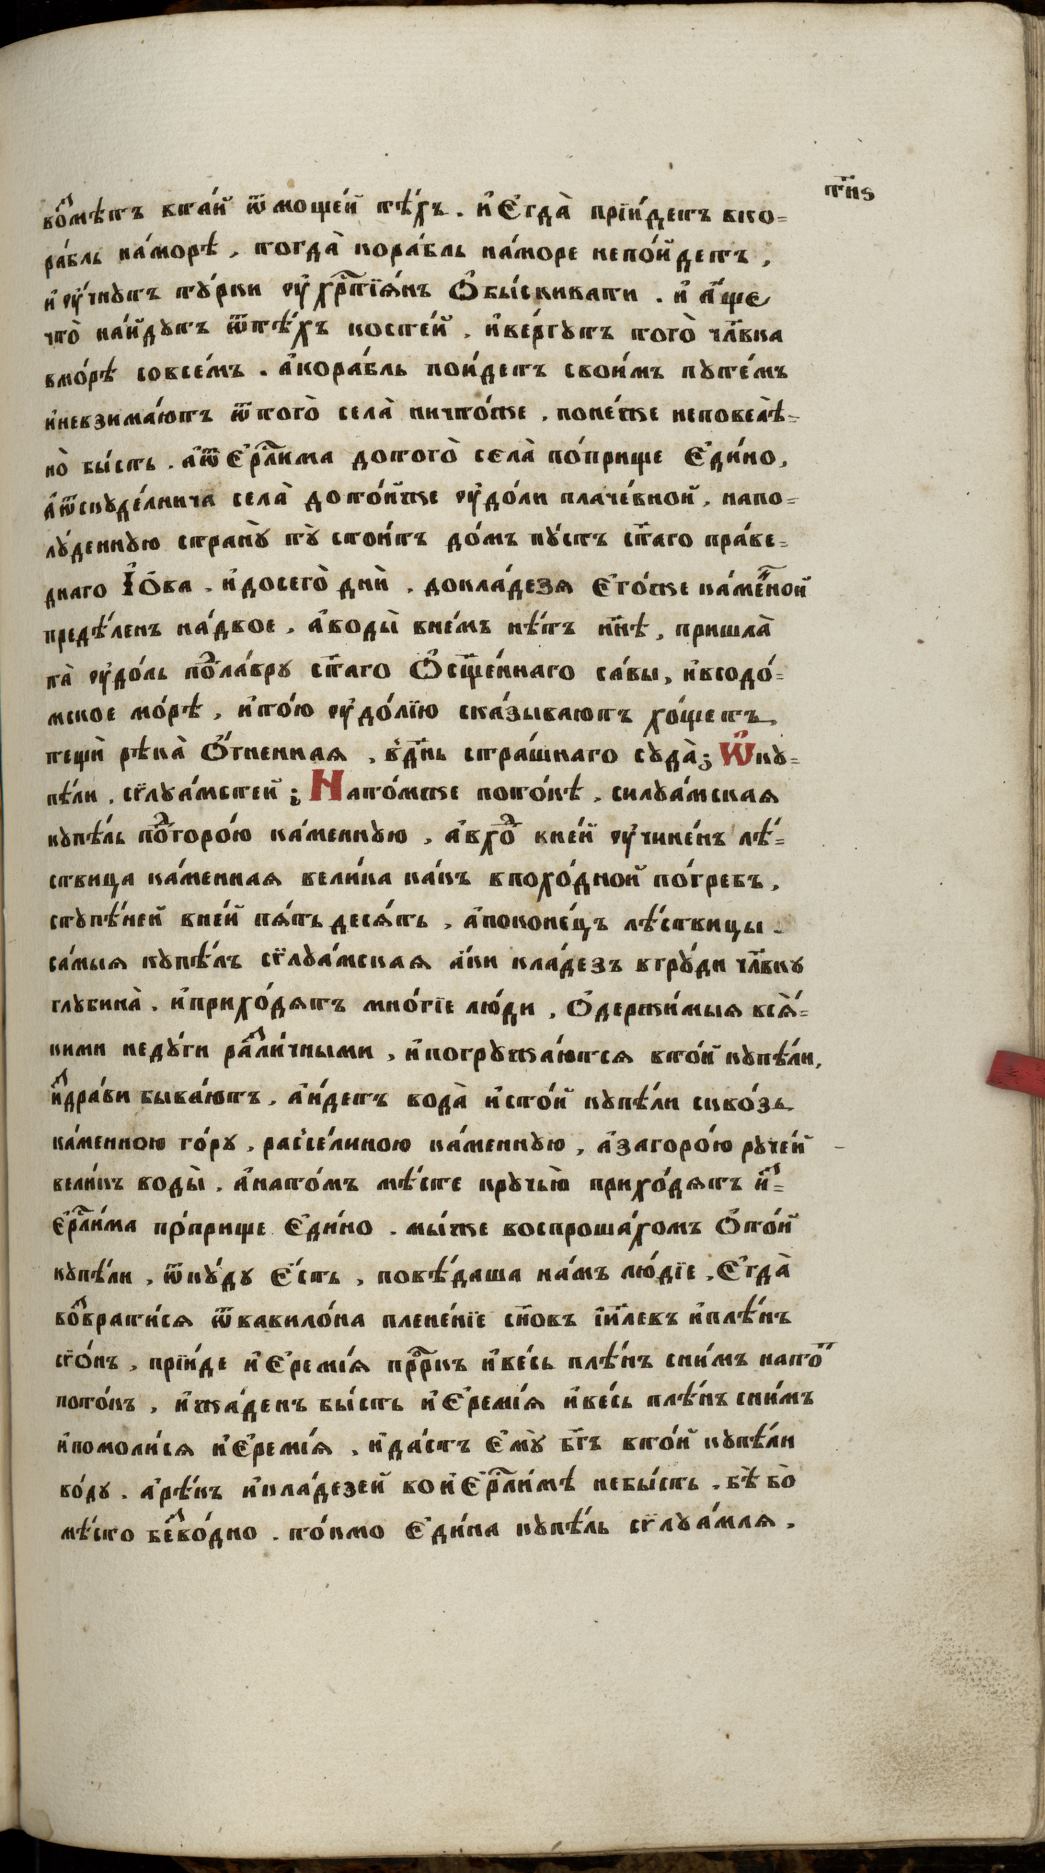 т҃нѕ
во́змѣтъ втай ѿ мощей тѣ́хъ . и҆ є҆гда̀ прїи́детъ вко=
ра́бль на́морѣ , тогда̀ кора́бль на́море непо́йдетъ ,
и҆ ѹ҆́чнутъ ту́рки ѹ҆ хрⷭ҇тїѧ́нъ ѻ҆бы́скивати . и҆ а҆́ще
что̀ на́йдутъ ѿтѣ́хъ косте́й , и҆ве́ргутъ того̀ чл҃вка
вмо́рѣ совсе́мъ . а҆кора́бль по́йдетъ свои́мъ путе́мъ
и҆невзима́ютъ ѿтого̀ села̀ ничто́же , поне́же неповелѣ=
но̀ бы́сть . а҆ѿ є҆рⷭ҇ли́ма дотого̀ села̀ по́прище є҆ди́но ,
а҆ѿскуде́лнича села̀ дото́йже ѹ҆до́ли плаче́вной , напо=
лу́денную страну̀ ту̀ стои́тъ до́мъ пу́стъ ст҃аго пра́ве=
днаго І҆ѻ҆́ва . и҆досего̀ днѝ . докла́дезѧ є҆го́же ка́менной
предѣ́ленъ на́двое . а҆воды̀ вне́мъ нѣ́тъ нн҃ѣ , пришла̀
та̀ ѹ҆до́ль подла́вру ст҃аго ѻ҆сщ҃е́ннаго са́вы , и҆всодо́=
мское мо́рѣ , и҆то́ю ѹ҆до́лїю ска́зываютъ хо́щетъ
тещѝ рѣка̀ ѻ҆́гненнаѧ , вдн҃ь стра́шнаго суда̀ ; Ѽ ку=
пѣ́ли . сїлуа́мстей ; Нато́мже пото́кѣ . силуа́мскаѧ
купѣ́ль подгоро́ю ка́менную , а҆вхо́д кне́й ѹ҆чине́нъ лѣ́=
ствица ка́меннаѧ вели́ка ка́къ впохо́дной по́гребъ ,
ступе́ней вне́й пѧ́тьдесѧ́тъ , а҆поконе́цъ лѣ́ствицы .
са́мыѧ купѣ́лъ сїлуа́мскаѧ а҆́ки кла́дезъ вгру́ди чл҃вку
глубина̀ . и҆прихо́дѧтъ мно́гїе лю́ди , ѻ҆держи́мыѧ всѧ́=
кими неду́ги разли́чными , и҆погружа́ютсѧ вто́й купѣ́ли ,
и҆здра́ви быва́ютъ . а҆и́детъ вода̀ и҆сто́й купѣ́ли скво́зь
ка́менною го́ру , разсе́линою ка́менную , а҆загоро́ю руче́й
вели́къ воды̀ . а҆нато́мъ мѣ́сте кручью̀ прихо́дѧтъ и҆з=
є҆рⷭ҇ли́ма по́прище є҆ди́но . мы́же воспроша́хомъ ѻ҆то́й
купѣ́ли , ѿку́ду є҆́сть , повѣ́даша на́мъ лю́дїе . є҆гда̀
возврати́сѧ ѿвавило́на плене́нїе сн҃овъ і҆и҃левъ и҆плѣ́нъ
сїѡ́нъ , прїи́де и҆ є҆ремі́ѧ прⷪ҇ркъ и҆ве́сь плѣ́нъ сни́мъ на то́й
пото́къ , и҆жа́денъ бы́сть и҆ є҆ремі́ѧ и҆ве́сь плѣ́нъ сни́мъ
и҆помоли́сѧ и҆ є҆ремі́ѧ . и҆да́стъ є҆му̀ бг҃ъ вто́й купѣ́ли
во́ду . а҆рѣ́къ и҆кла́дезей во и҆є҆рⷭ҇ли́мѣ небы́сть . бѣ̀ бо̀
мѣ́сто безво́дно . то́кмо є҆ди́на купѣ́ль сїлуа́млѧ .